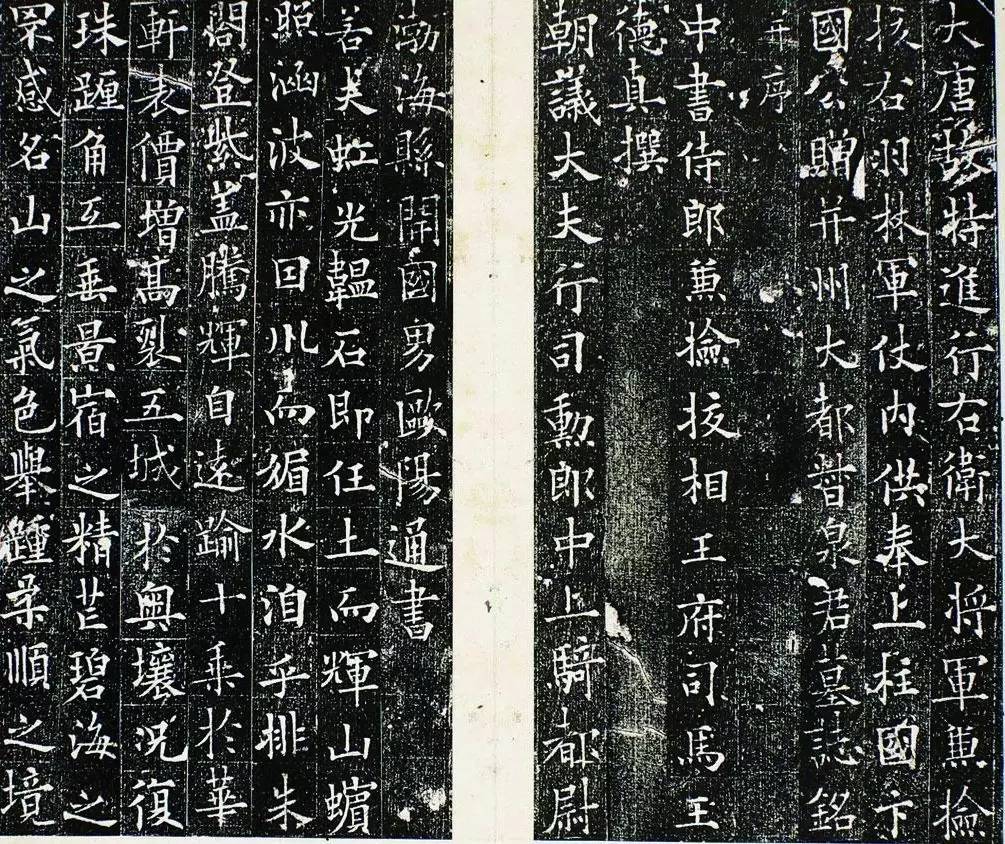 大唐故特進行右衛大将軍兼撿
挍右羽林軍仗內供奉上柱國卞
國公贈并州大都督泉君墓誌銘
并序
中書侍郎兼撿挍相王府司馬王
德真撰
朝議大夫行司勳郎中上騎都尉
渤海縣開國男歐陽通書
若夫虹光韞石即任土而輝山蠙
照涵波亦因川而媚水洎乎排朱
閣登紫盖騰輝自遠踰十乘於華
軒表價增高裂五城於奧壤況復
珠躔角互垂景宿之精芒碧海之
罘感名山之氣色舉踵柔順之境